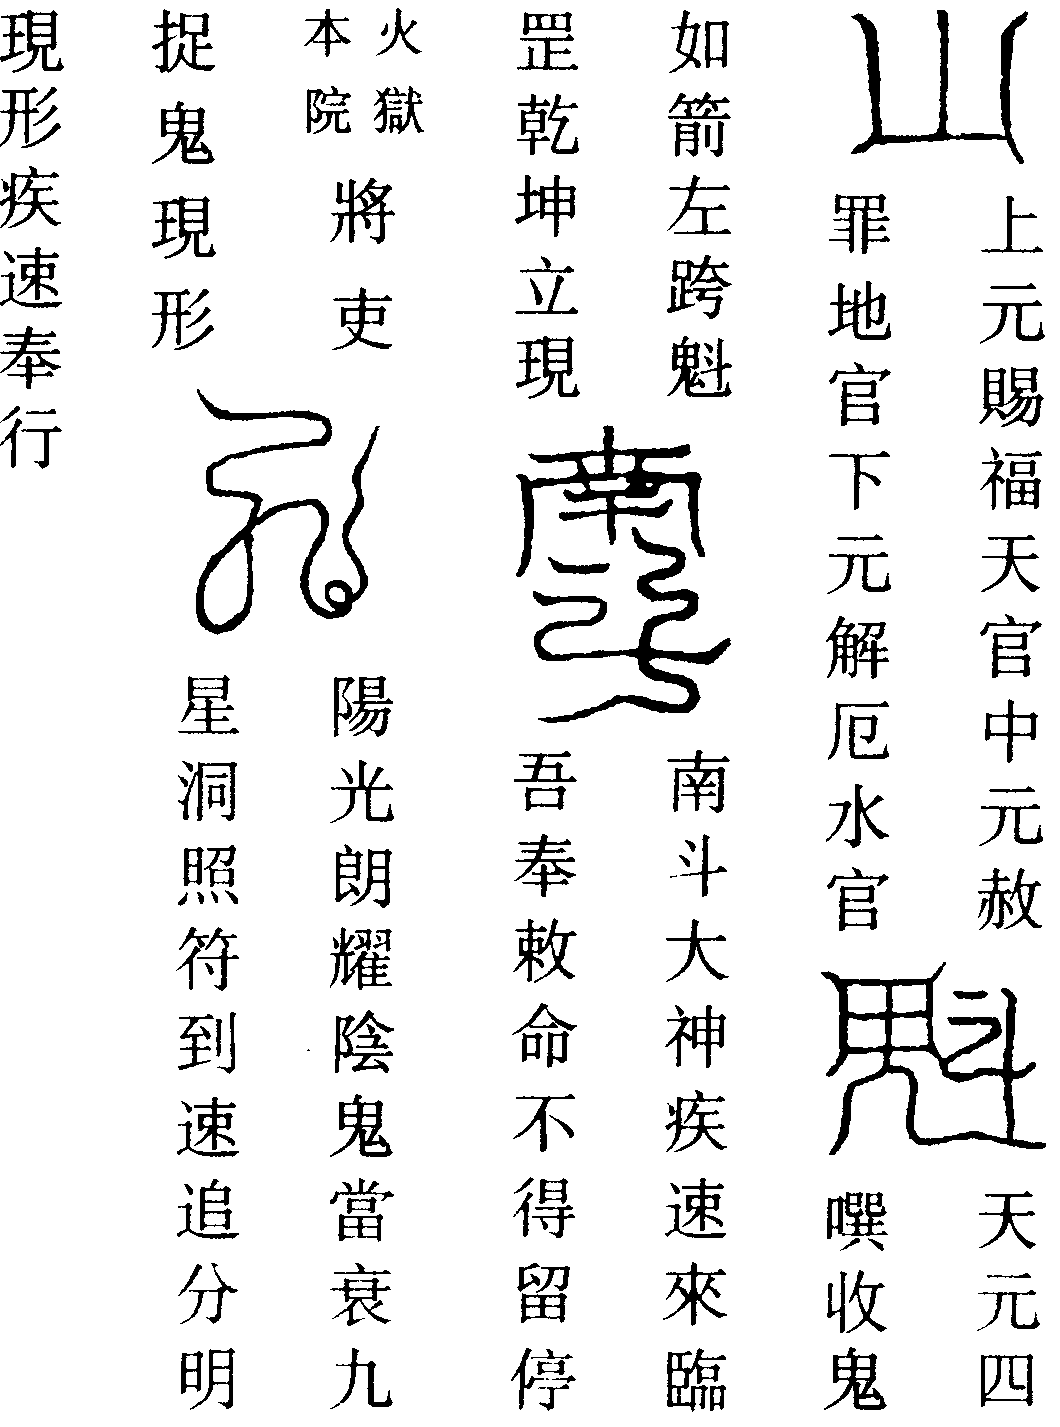 上元賜福天官中元赦
罪地官下元解厄水官
天元四
噀收鬼
如箭左跨魁
罡乾坤立現
南斗大神疾速來臨
吾奉敕命不得留停
火獄
本院
將吏
捉鬼現形
陽光朗耀陰鬼當衰九
星洞照符到速追分明
現形疾速奉行